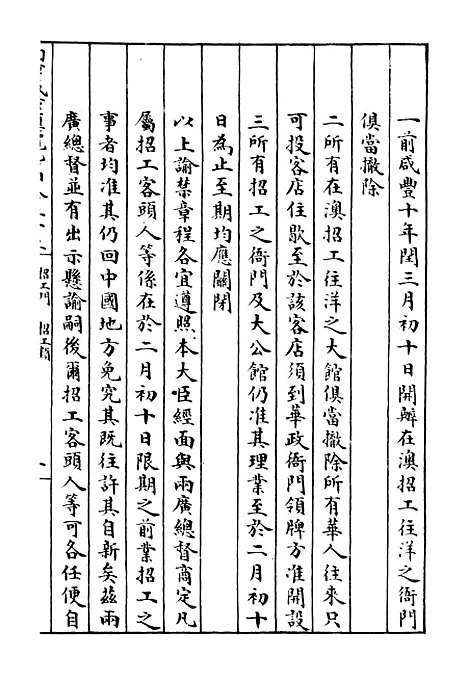 一前咸豐十年閏三月初十日開辦在澳招工往洋之衙門
俱當撤除
二所有在澳招工往洋之大館俱當撤除所有華人往來只
可投客店住歇至於該客店須到華政衙門領牌方准開設
三所有招工之衙門及大公館仍准其理業至於二月初十
日為止至期均應關閉
以上諭禁章程各宜遵照本大臣經面與兩廣總督商定凡
屬招工客頭人等係在於二月初十日限期之前業招工之
事者均准其仍回中國地方免究其既往許其自新矣茲兩
廣總督並有出示懸諭嗣後爾招工客頭人等可各任便自
招工門 招工類